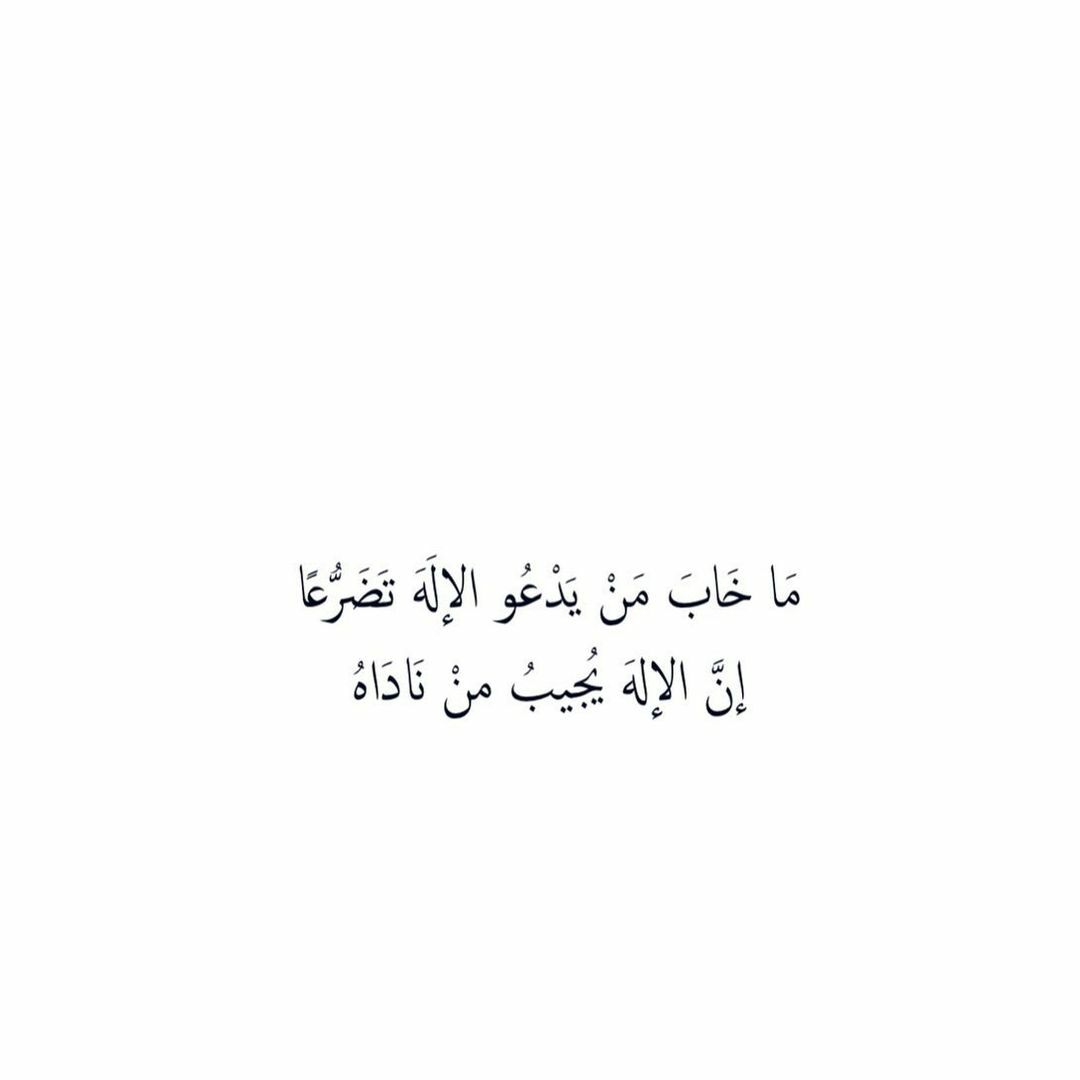 مَا خَابَ مَنْ يَدْعُو الإلَهَ تَضَرُّعًا
إنَّ الإلهَ يُجيبُ منْ نَادَاهُ